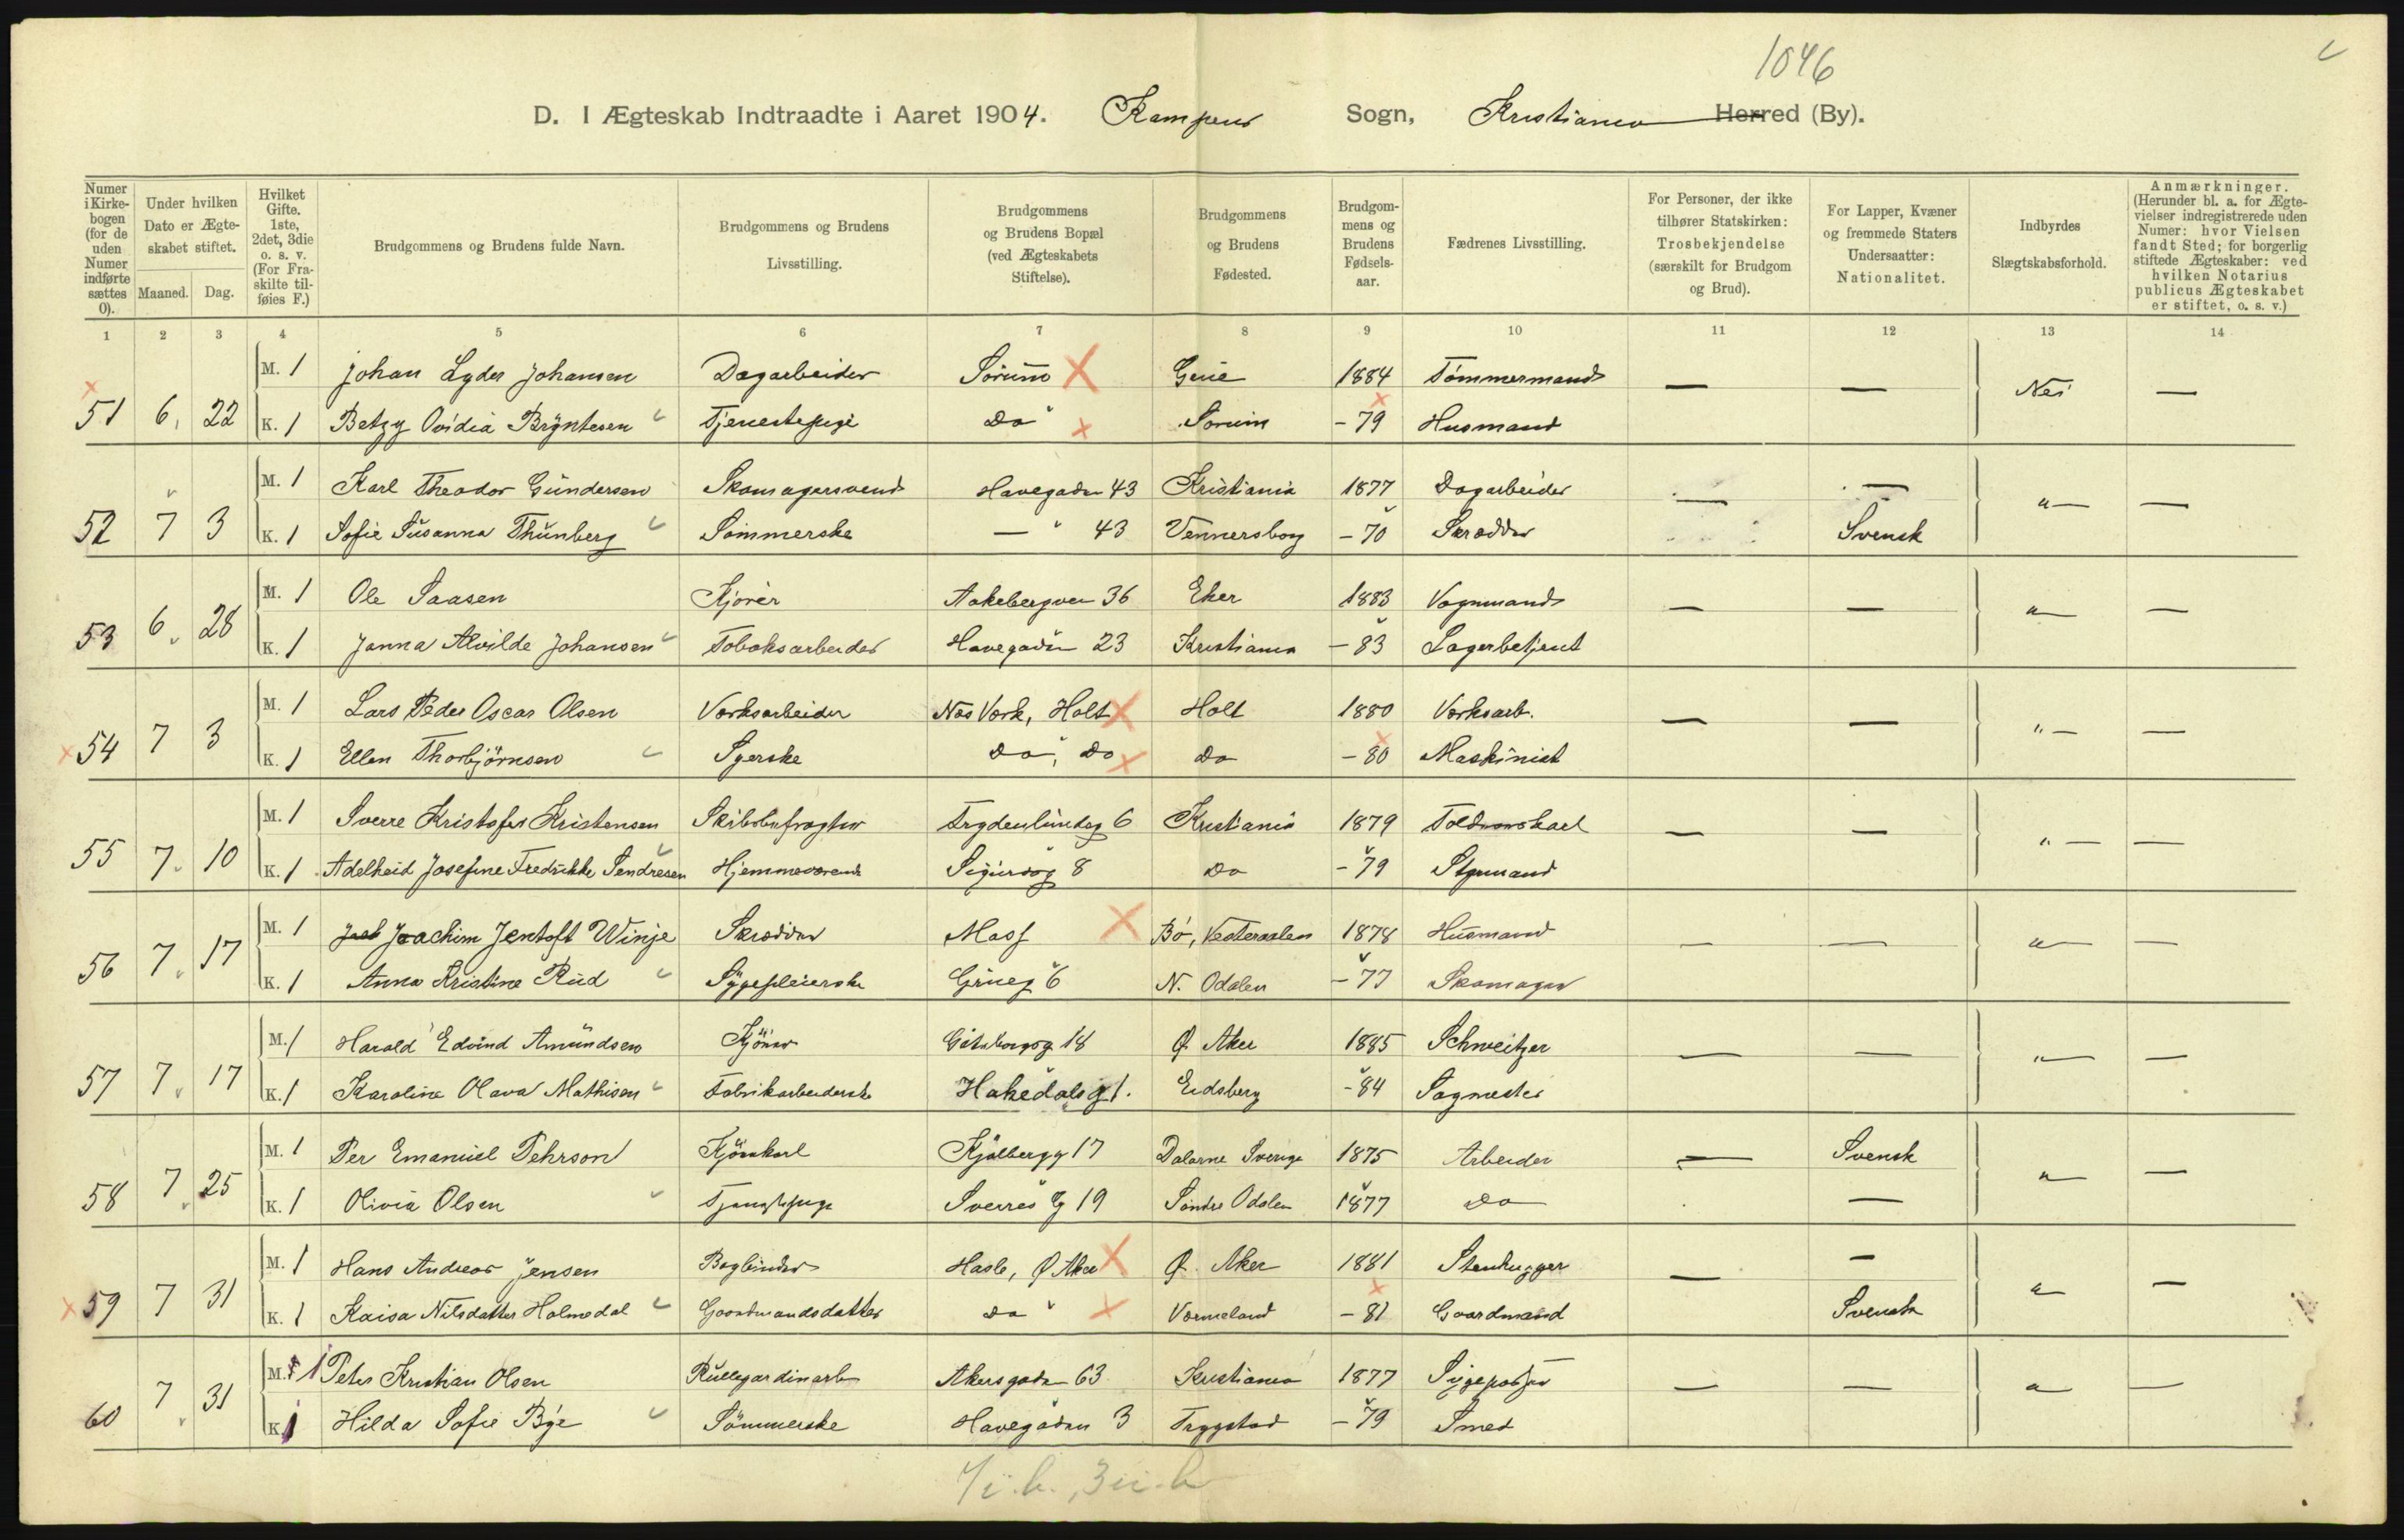 1046
D. I Ægteskab Indtraadte i Aaret 1904. Kampens Sogn, Kristiania Herred (By).
Numer i Kirkebogen (for de uden Numer indførte sættes 0).
Under hvilken Dato er Ægteskabet stiftet.
Maaned. Dag.
Hvilket Gifte. 1ste, 2det, 3die o. s. v. (For Fraskilte tilføies F.)
Brudgommens og Brudens fulde Navn.
Brudgommens og Brudens Livsstilling.
Brudgommens og Brudens Bopæl (ved Ægteskabets Stiftelse).
Brudgommens og Brudens Fødested.
Brudgommens og Brudens Fødselsaar.
Fædrenes Livsstilling.
For Personer, der ikke tilhører Statskirken: Trosbekjendelse (særskilt for Brudgom og Brud).
For Lapper, Kvæner og fremmede Staters Undersaatter: Nationalitet.
Indbyrdes Slægtskabsforhold.
Anmærkninger. (Herunder bl. a. for Ægtevielser indregistrerede uden Numer: hvor Vielsen fandt Sted; for borgerlig stiftede Ægteskaber: ved hvilken Notarius publicus Ægteskabet er stiftet, o. s. v.)
1 2 3 4 5 6 7 8 9 10 11 12 13 14
M. 1 Johan Lyder Johansen Dagarbeider Sørum Grue 1884 Tömmermand — — Nei —
51 6. 22 K. 1 Betzy Ovidia Bryntesen Tjenestepige Do Sørum - 79 Husmand
M. 1 Karl Theodor Gundersen Skomagersvend Havegaden 43 Kristiania 1877 Dagarbeider — — "— —
52 7 3 K. 1 Sofie Susanna Thunberg Sömmerske — " 43 Vennersborg - 70 Skrædder Svensk
M. 1 Ole Saasen Kjörer Aakebergven 36 Eker 1883 Vognmand — — "— —
53 6 28 K. 1 Janna Alvilde Johansen Tobaksarbeider Havegaden 23 Kristiania - 83 Lagerbetjent
M. 1 Lars Peder Oscar Olsen Værksarbeider Næs Værk, Holt Holt 1880 Værksarb. — — "— —
54 7 3 K. 1 Ellen Thorbjörnsen Syerske Do, Do Do - 80 Maskinist
M. 1 Sverre Kristofer Kristensen Skibsbefragter Frydenlundsg 6 Kristiania 1879 — — "— —
55 7 10 K. 1 Adelheid Josefine Fredrikke Sendresen Hjemmeværende Sigursg 8 Do - 79 Styrmand
M. 1 Joachim Jentoft Winje Skrædder Moss Bö, Vesteraalen 1878 Husmand — — "— —
56 7 17 K. 1 Anna Kristine Rud Sygepleierske Grueg 6 N. Odalen - 77 Skomager
M. 1 Harald Edvind Amundsen Kjörer Göteborgsg 18 Ø. Aker 1885 Schweitzer — — "— —
57 7 17 K. 1 Karoline Olava Mathisen Fabrikarbeiderske Hakedalsg 1. Eidsberg - 84 Sagmester
M. 1 Per Emanuel Pehrson Kjörekarl Kjölbergg 17 Dalarne Sverige 1875 Arbeider — Svensk "— —
58 7 25 K. 1 Olivia Olsen Tjenestepige Sverres g 19 Söndre Odalen 1877 Do —
M. 1 Hans Andreas Jensen Bogbinder Hasle, Ø Aker Ø. Aker 1881 Stenhugger — — "— —
59 7 31 K. 1 Kaisa Nilsdatter Holmedal Gaardmandsdatter Do " Værmeland - 81 Gaardmand Svensk
M. 1 Peter Kristian Olsen Rullegardinarb Akersgaden 63 Kristiania 1877 Sygepasser — — "— —
60 7 31 K. 1 Hilda Sofie Bye Sömmerske Havegaden 3 Trygstad - 79 Smed